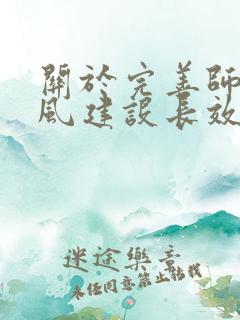 關於完善師
風建設長效
迷途樂章
未經同意禁止轉載